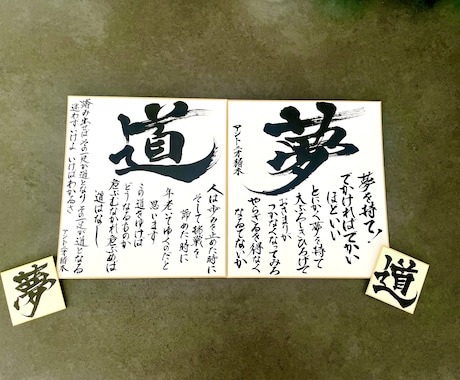 夢
夢を持て!
でかければでかい
ほどいい
とにかく夢を持て
大ぶろしきひろげて
おさまりが
つかなくなってみろ
やらざるを得なく
アントニオ猪木
道
人は歩みを止めた時に
そして挑戦を
諦めた時に
年老いてゆくのだと
思います
この道を行けば
どうなるものか
危ぶむなかれ危ぶめば
道はなし
踏み出せばその一足が道となりその一足が道となる
迷わずいけよ いけばわかるさ
アントニオ猪木
夢
道